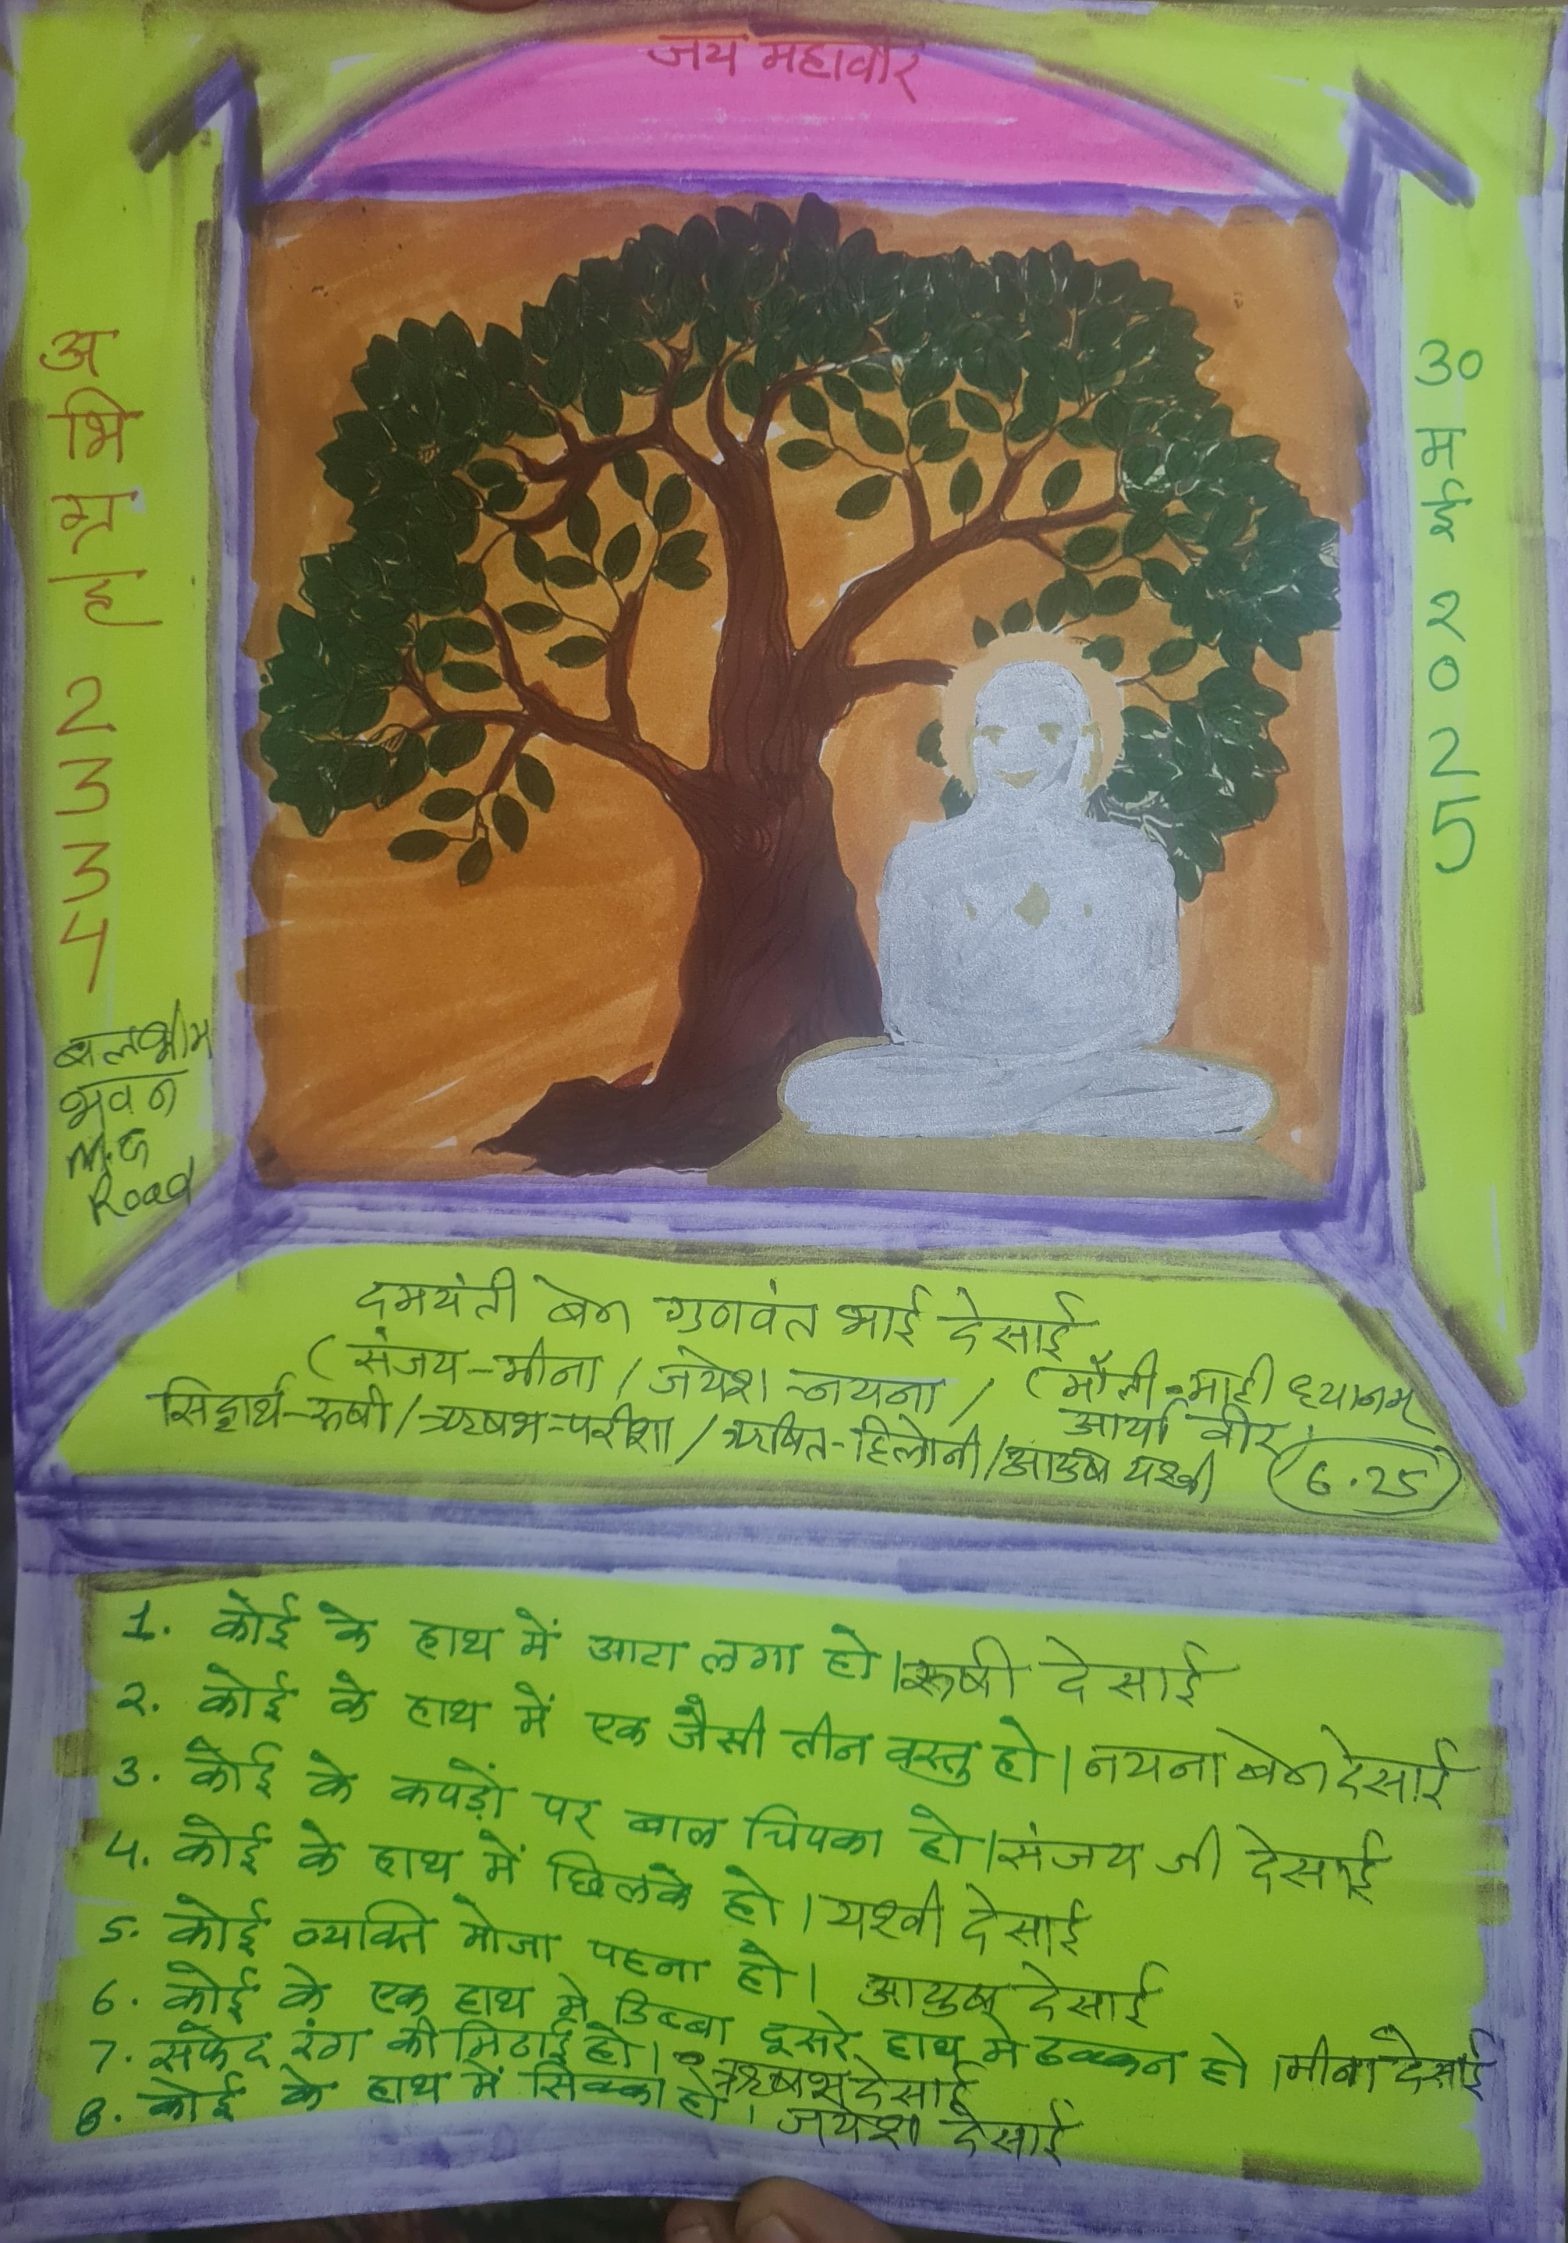 जय महावीर
अ
भि
ग्र
ह
2
3
3
4
बलभीम
भवन
M.G
Road
30
म
ई
२
०
2
5
दमयंती बेन गुणवंत भाई देसाई
(संजय-मीना / जयेश-नयना / (मौली-माही ध्यानम्
आर्या वीर)
सिद्धार्थ-रुषी / ऋषभ-परीशा / ऋषित-हिलोनी / आयुष यश्वी
6.25
1. कोई के हाथ में आटा लगा हो। रुषी देसाई
2. कोई के हाथ में एक जैसी तीन वस्तु हो। नयना बेन देसाई
3. कोई के कपड़ो पर बाल चिपका हो। संजय जी देसाई
4. कोई के हाथ में छिलके हो। यश्वी देसाई
5. कोई व्यक्ति मोजा पहना हो। आयुष देसाई
6. कोई के एक हाथ मे डिब्बा दूसरे हाथ मे ढक्कन हो। मीना देसाई
7. सफेद रंग की मिठाई हो। ऋषभ देसाई
8. कोई के हाथ में सिक्का हो। जयेश देसाई